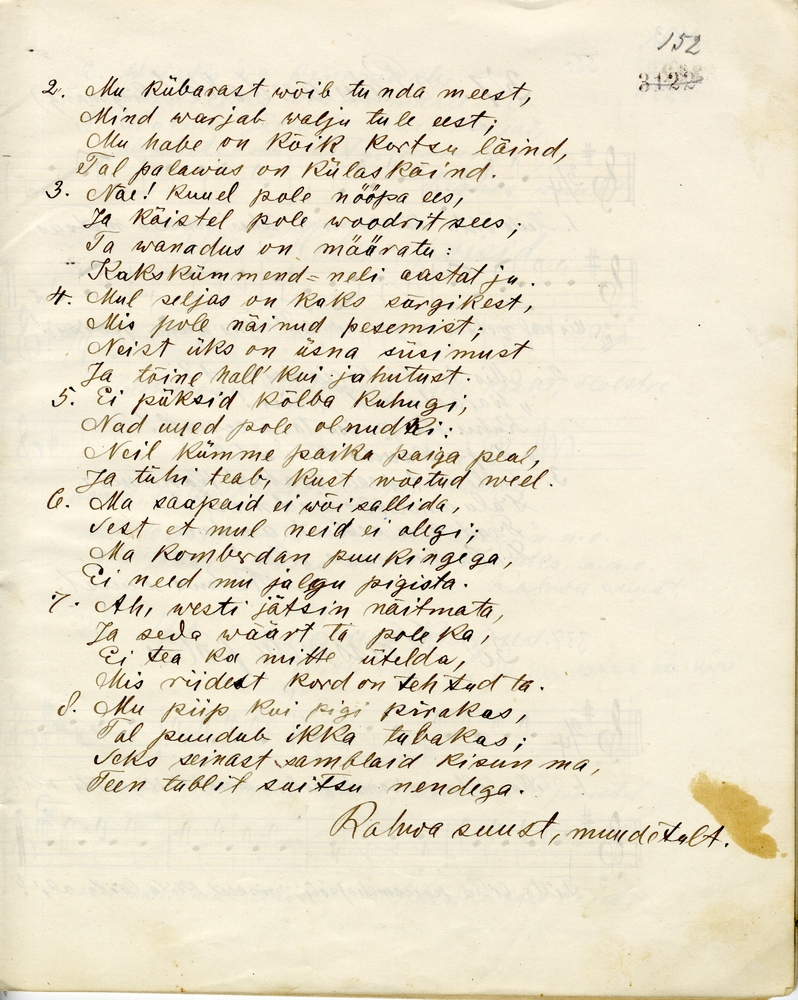 152
3122
2. Mu kübarast wõib tunda meest,
Mind warjab walju tule eest;
Mu habe on kõik kortsu läind,
Tal palawus on külaskäind.
3. Näe! kuuel pole nööpa ees,
Ja käistel pole woodrit sees;
Ta wanadus on määratu:
Kakskümmend=neli aastat ju.
4. Mul seljas on kaks särgikest,
Mis pole näinud pesemist;
Neist üks on üsna süsimust
Ja tõine hall kui jahutust.
5. Ei püksid kõlba kuhugi,
Nad uued pole olnudki:
Neil kümme paika paiga peal,
Ja tühi teab, kust wõetud weel.
6. Ma saapaid ei wõi sallida,
Sest et mul neid ei olegi;
Ma komberdan puukingega,
Ei need mu jalgu pigista.
7. Ah, westi jätsin näitmata,
Ja seda wäärt ta pole ka,
Ei tea ka mitte ütelda,
Mis riidest kord on tehtud ta.
8. Mu piip kui pigi pirakas,
Tal puudub ikka tubakas;
Seks seinast samblaid kisun ma,
Teen tublit suitsu nendega.
Rahwa suust, muudetult.